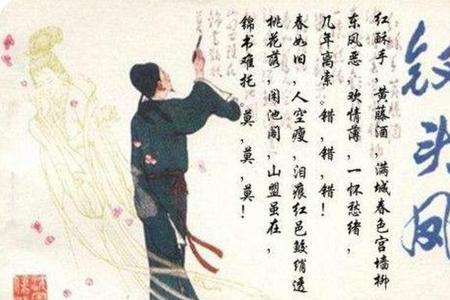 钗头凤
红酥手，黄藤酒，满城春色宫墙柳
东风恶，欢情薄，一怀愁绪，
几年离索。错，错，错！
春如旧，人空瘦，泪痕红邑鲛绡透
桃花落，闲池阁，山盟虽在，
锦书难托。莫，莫，莫！